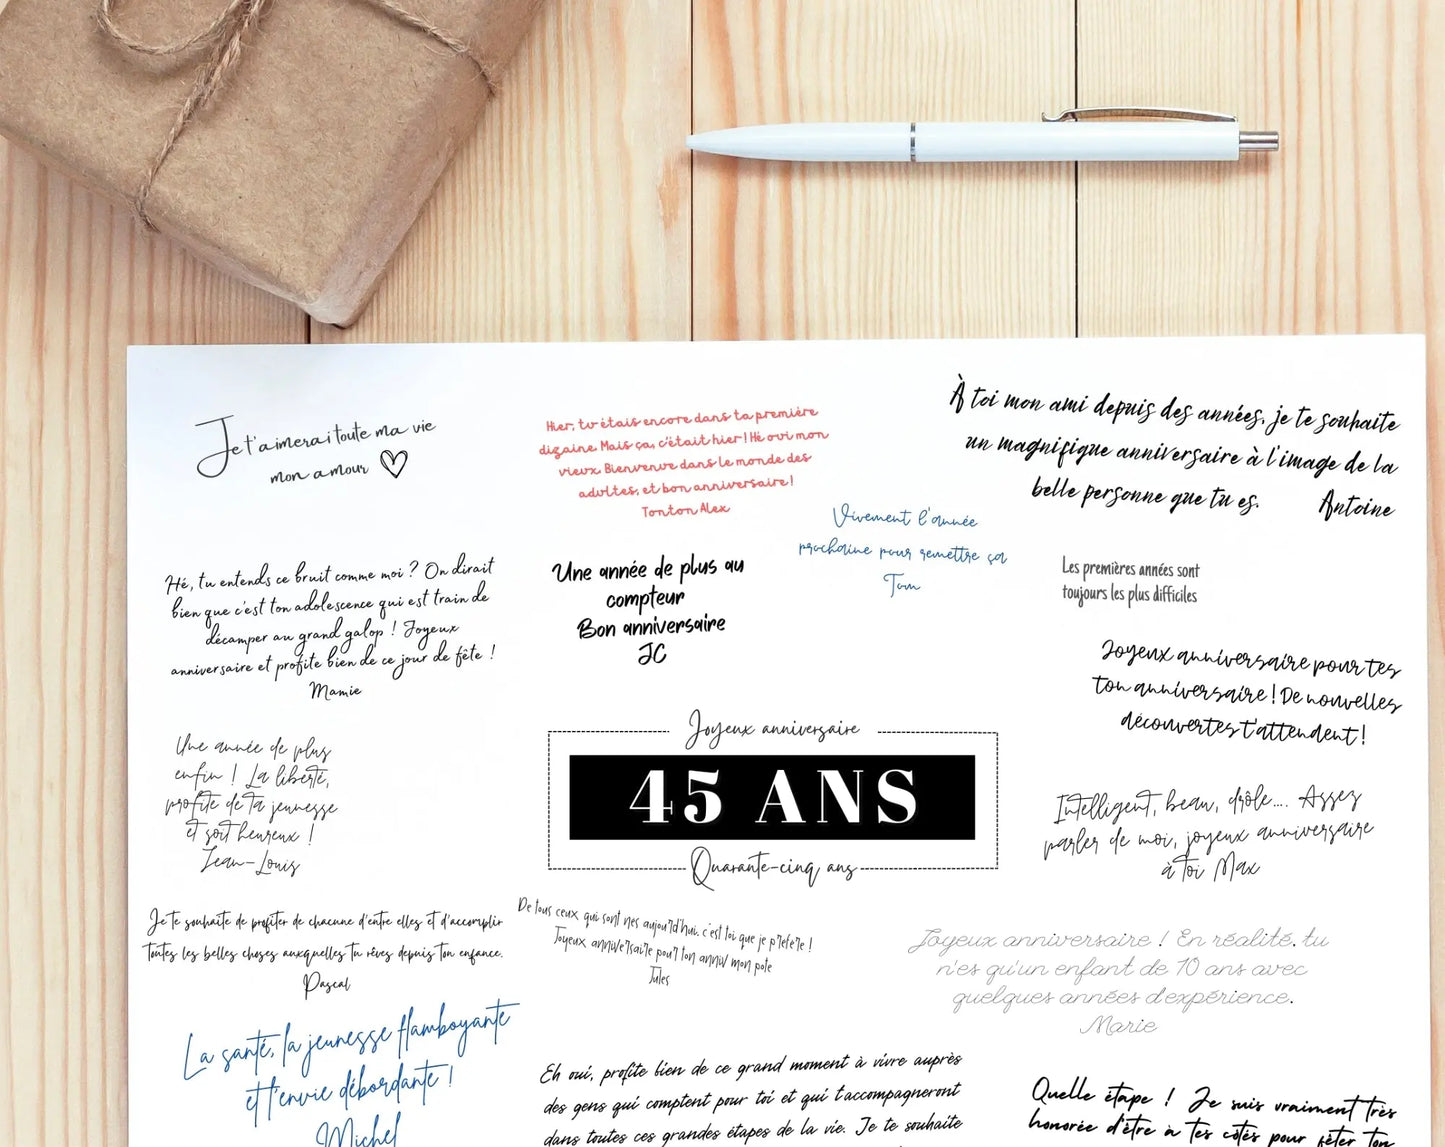 Je t'aimerai toute ma vie
mon amour
Hier, tu étais encore dans ta première
dizaine. Mais ça, c'était hier ! Hé oui mon
vieux. Bienvenue dans le monde des
adultes, et bon anniversaire !
Tonton Alex
À toi mon ami depuis des années, je te souhaite
un magnifique anniversaire à l'image de la
belle personne que tu es.
Antoine
Vivement l'année
prochaine pour remettre ça
Tom
Hé, tu entends ce bruit comme moi ? On dirait
bien que c'est ton adolescence qui est train de
décamper au grand galop ! Joyeux
anniversaire et profite bien de ce jour de fête !
Mamie
Une année de plus au
compteur
Bon anniversaire
JC
Les premières années sont
toujours les plus difficiles
Joyeux anniversaire pour tes
ton anniversaire ! De nouvelles
découvertes t'attendent !
Une année de plus
enfin ! La liberté,
profite de ta jeunesse
et soit heureux !
Jean-Louis
Joyeux anniversaire
45 ANS
Quarante-cinq ans
Intelligent, beau, drôle.... Assez
parler de moi, joyeux anniversaire
à toi Max
Je te souhaite de profiter de chacune d'entre elles et d'accomplir
toutes les belles choses auxquelles tu rêves depuis ton enfance.
Pascal
De tous ceux qui sont nes aujourd'hui. c'est toi que je préfère !
Joyeux anniversaire pour ton anniv mon pote
Jules
Joyeux anniversaire ! En réalité. tu
n'es qu'un enfant de 10 ans avec
quelques années d'expérience.
Marie
La santé, la jeunesse flamboyante
et l'envie débordante !
Michel
Eh oui, profite bien de ce grand moment à vivre auprès
des gens qui comptent pour toi et qui t'accompagneront
dans toutes ces grandes étapes de la vie. Je te souhaite
Quelle étape ! Je suis vraiment très
honorée d'être à tes côtés pour fêter ton